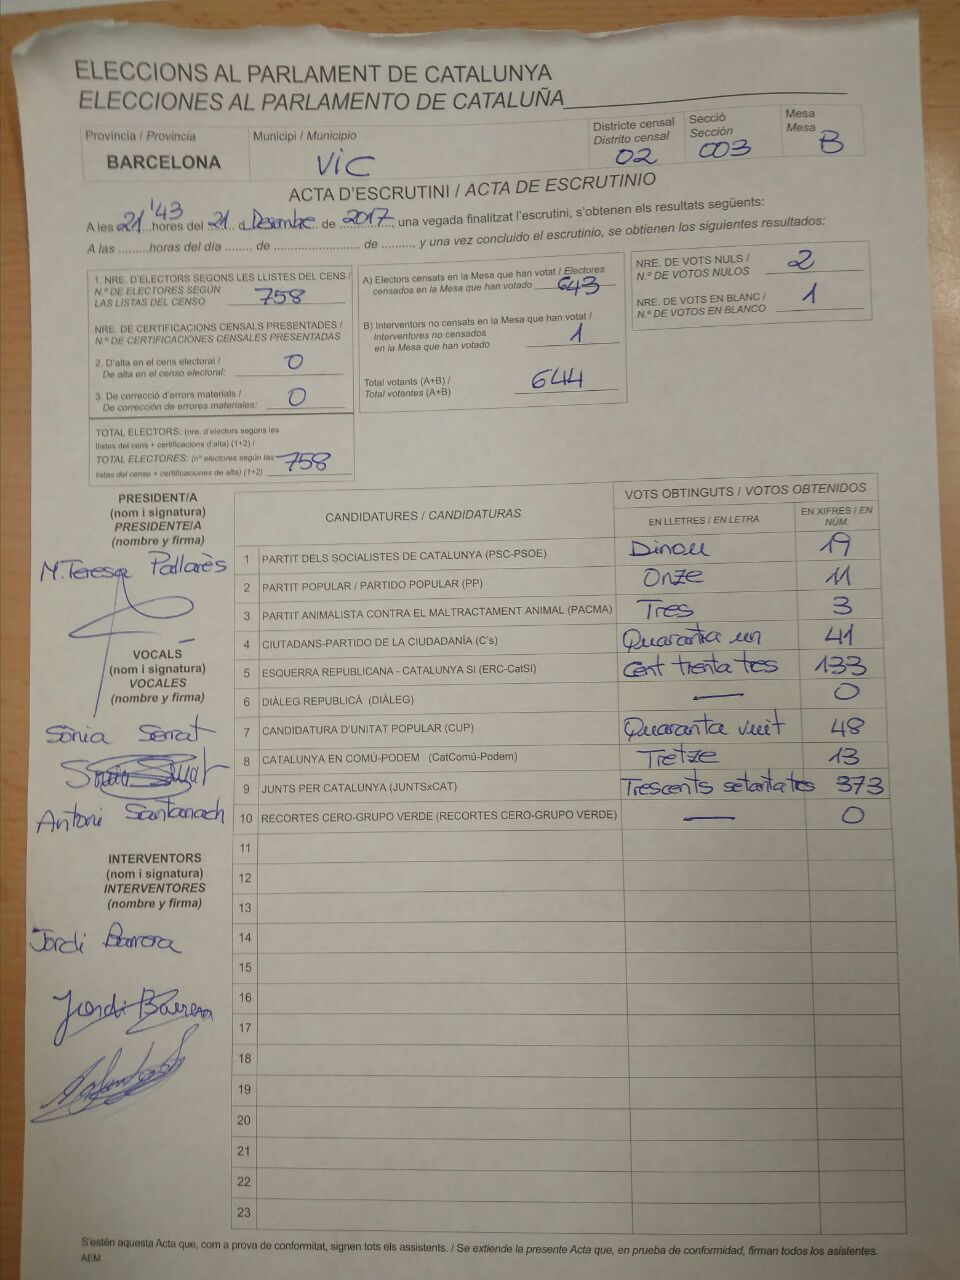 ELECCIONS AL PARLAMENT DE CATALUNYA
ELECCIONES AL PARLAMENTO DE CATALUÑA
Província / Provincia
BARCELONA
Municipi / Municipio
VIC
Districte censal
Distrito censal
02
Secció
Sección
003
Mesa
Mesa
B
ACTA D'ESCRUTINI / ACTA DE ESCRUTINIO
A les 21'43 hores del 21 d Desembre de 2017 una vegada finalitzat l'escrutini, s'obtenen els resultats següents:
A las .........horas del día ........ de ......................... de ........., y una vez concluido el escrutinio, se obtienen los siguientes resultados:
1. NRE. D'ELECTORS SEGONS LES LLISTES DEL CENS /
N.º DE ELECTORES SEGÚN
LAS LISTAS DEL CENSO 758
NRE. DE CERTIFICACIONS CENSALS PRESENTADES /
N.º DE CERTIFICACIONES CENSALES PRESENTADAS
2. D'alta en el cens electoral /
De alta en el censo electoral: 0
3. De correcció d'errors materials /
De corrección de errores materiales: 0
TOTAL ELECTORS: (nre. d'electors segons les
llistes del cens + certificacions d'alta) (1+2) /
TOTAL ELECTORES: (nº electores según las
listas del censo + certificaciones de alta) (1+2) 758
A) Electors censats en la Mesa que han votat / Electores
censados en la Mesa que han votado 643
B) Interventors no censats en la Mesa que han votat /
Interventores no censados
en la Mesa que han votado 1
Total votants (A+B) /
Total votantes (A+B) 644
NRE. DE VOTS NULS /
N.º DE VOTOS NULOS 2
NRE. DE VOTS EN BLANC /
N.º DE VOTOS EN BLANCO 1
PRESIDENT/A
(nom i signatura)
PRESIDENTE/A
(nombre y firma)
M. Teresa Pallarès
VOCALS
(nom i signatura)
VOCALES
(nombre y firma)
Sònia Serrat
Antoni Santanach
INTERVENTORS
(nom i signatura)
INTERVENTORES
(nombre y firma)
Jordi Barrera
Jordi Barrera
CANDIDATURES / CANDIDATURAS
VOTS OBTINGUTS / VOTOS OBTENIDOS
EN LLETRES / EN LETRA
EN XIFRES / EN NÚM.
1 PARTIT DELS SOCIALISTES DE CATALUNYA (PSC-PSOE) Dinou 19
2 PARTIT POPULAR / PARTIDO POPULAR (PP) Onze 11
3 PARTIT ANIMALISTA CONTRA EL MALTRACTAMENT ANIMAL (PACMA) Tres 3
4 CIUTADANS-PARTIDO DE LA CIUDADANÍA (C's) Quaranta un 41
5 ESQUERRA REPUBLICANA - CATALUNYA SI (ERC-CatSí) Cent trenta tres 133
6 DIÀLEG REPUBLICÀ (DIÀLEG) — 0
7 CANDIDATURA D'UNITAT POPULAR (CUP) Quaranta vuit 48
8 CATALUNYA EN COMÚ-PODEM (CatComú-Podem) Tretze 13
9 JUNTS PER CATALUNYA (JUNTSxCAT) Trescents setanta tres 373
10 RECORTES CERO-GRUPO VERDE (RECORTES CERO-GRUPO VERDE) — 0
11
12
13
14
15
16
17
18
19
20
21
22
23
S'estén aquesta Acta que, com a prova de conformitat, signen tots els assistents. / Se extiende la presente Acta que, en prueba de conformidad, firman todos los asistentes.
AEM